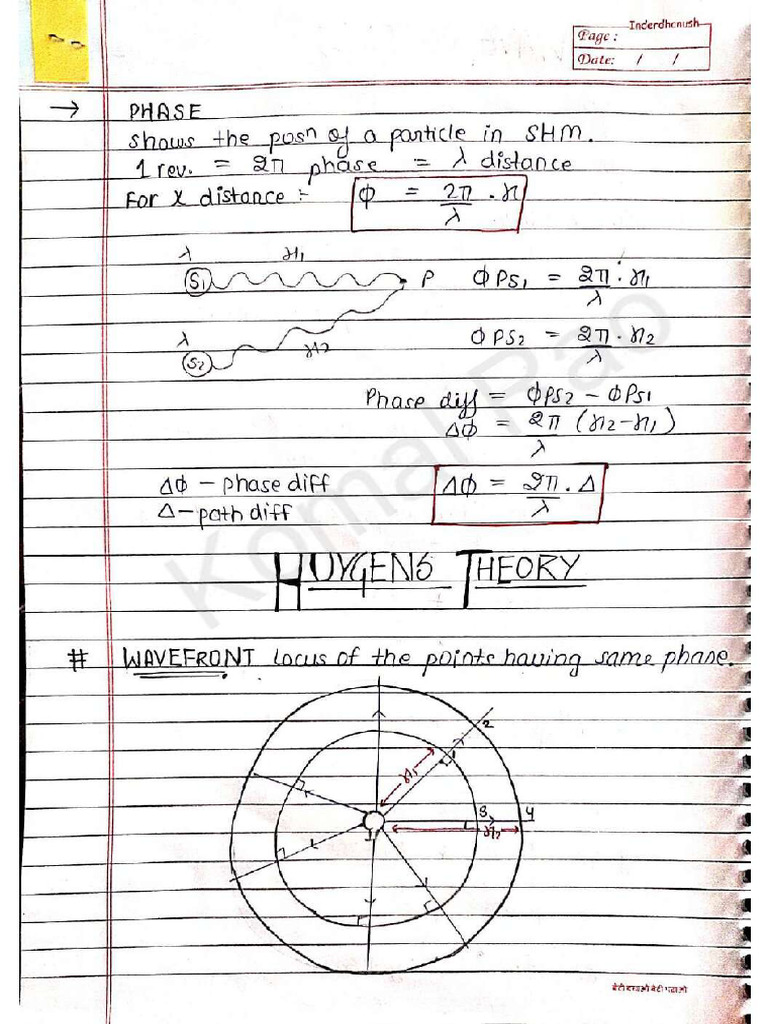 Inderdhenush
Page :
Date: / /
→ PHASE
shows the posn of a particle in SHM.
1 rev. = 2π phase = λ distance
For x distance :- ϕ = 2π/λ . x
λ x₁
S₁ P ϕPS₁ = 2π/λ . x₁
λ x₂
S₂ ϕPS₂ = 2π/λ . x₂
Phase diff = ϕPS₂ - ϕPS₁
Δϕ = 2π/λ (x₂-x₁)
Δϕ - phase diff
Δ - path diff
Δϕ = 2π/λ . Δ
HUYGENS THEORY
# WAVEFRONT locus of the points having same phase.
2
x₁ 1
3 4
x₂
Komal Rao